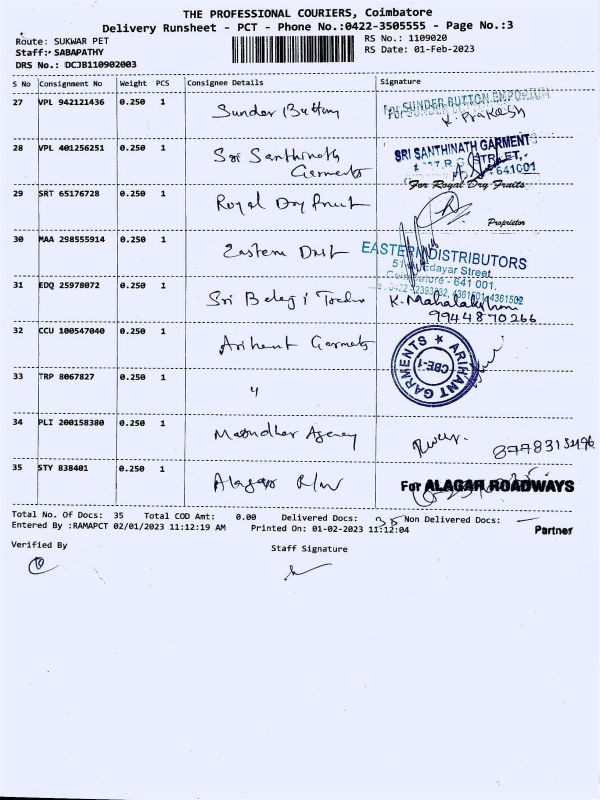 THE PROFESSIONAL COURIERS, Coimbatore
Delivery Runsheet - PCT - Phone No.:0422-3505555 - Page No.:3
Route: SUKWAR PET RS No.: 1109020
Staff: SABAPATHY RS Date: 01-Feb-2023
DRS No.: DCJB110902003
S No Consignment No Weight PCS Consignee Details Signature
27 VPL 942121436 0.250 1 Sunder Button For SUNDER BUTTON EMPORIUM
K. Prakash
28 VPL 401256251 0.250 1 Sri Santhinath SRI SANTHINATH GARMENTS
Garments STREET,
641001
For Royal Dry Fruits
29 SRT 65176728 0.250 1 Royal Dry Fruit
Proprietor
30 MAA 298555914 0.250 1 Eastern Dist EASTERN DISTRIBUTORS
Edayar Street,
Coimbatore - 641 001.
31 EDQ 25978072 0.250 1 Sri 4361502
K. Mahalakshmi
9944870266
32 CCU 100547040 0.250 1 Arihant Garments ARIHANT GARMENTS
CBE-1
33 TRP 8067827 0.250 1 "
34 PLI 200158380 0.250 1 Agency
35 STY 838401 0.250 1 Alagar R/W For ALAGAR ROADWAYS
Total No. Of Docs: 35 Total COD Amt: 0.00 Delivered Docs: 35 Non Delivered Docs: —
Entered By :RAMAPCT 02/01/2023 11:12:19 AM Printed On: 01-02-2023 11:12:04 Partner
Verified By Staff Signature